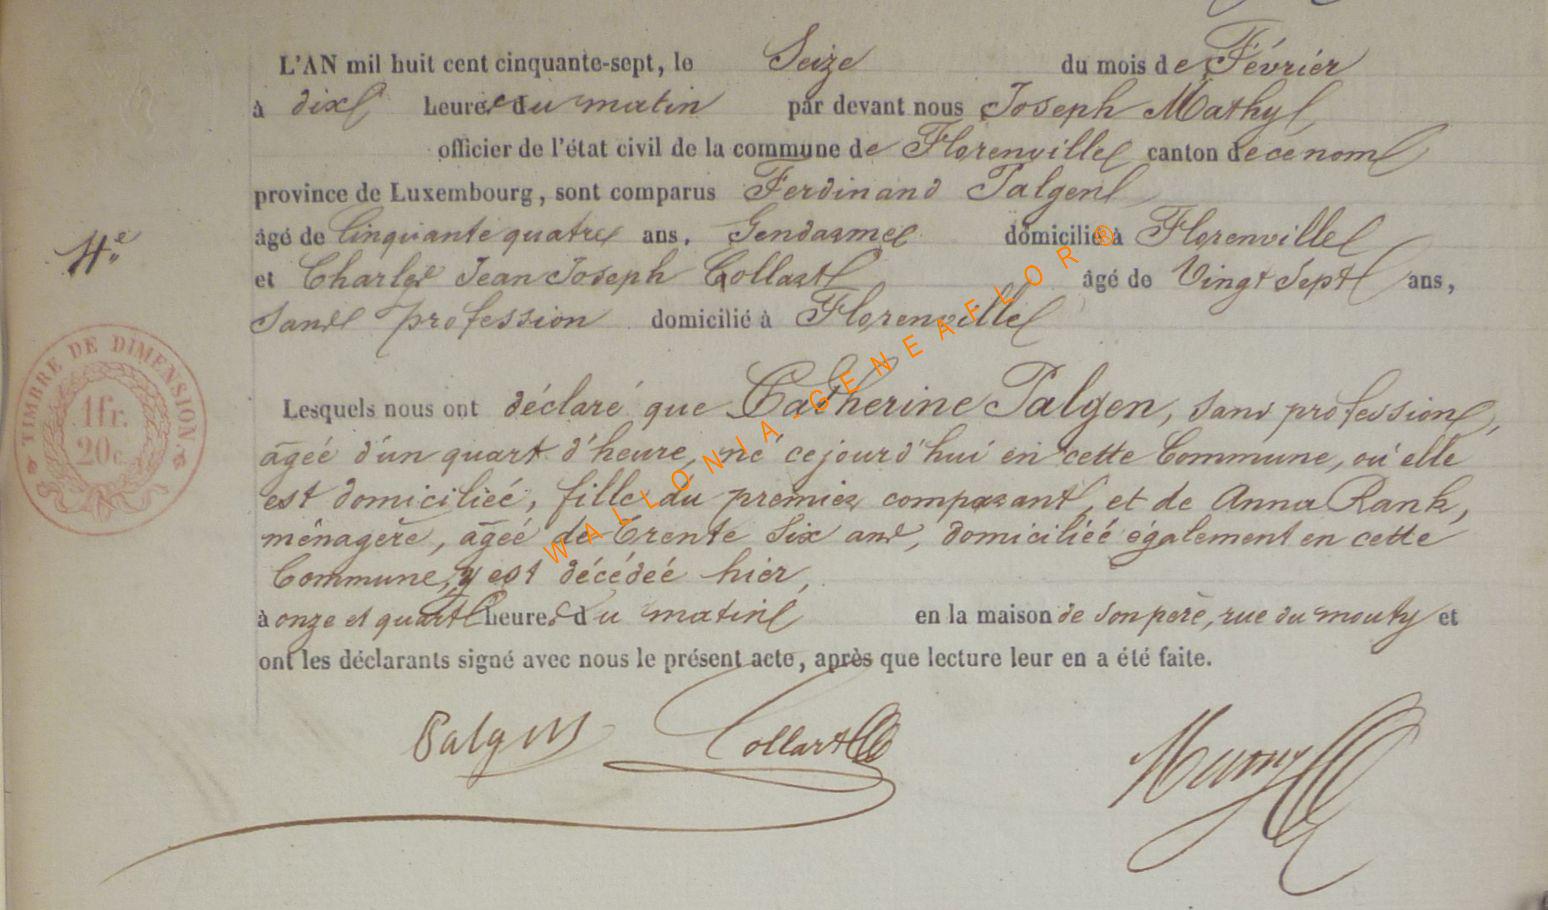 L'AN mil huit cent cinquante-sept, le Seize du mois de Février
à dix heures du matin par devant nous Joseph Mathy
officier de l'état civil de la commune de Florenville canton de ce nom
province de Luxembourg, sont comparus Ferdinand Palgen
âgé de Cinquante quatre ans, Gendarme domicilié à Florenville
4e
et Charles Jean Joseph Collart âgé de Vingt Sept ans,
Sans profession domicilié à Florenville
TIMBRE DE DIMENSION.
1 fr.
20 c.
Lesquels nous ont déclaré que Catherine Palgen, sans profession,
âgéé d'un quart d'heure, né cejourd'hui en cette Commune, où elle
est domiciliéé, fille du premier comparant, et de Anna Rank,
ménagère, âgéé de Trente Six ans, domiciliéé également en cette
Commune, y est décédéé hier,
à onze et quart heures du matin en la maison de son père, rue du mouty et
ont les déclarants signé avec nous le présent acte, après que lecture leur en a été faite.
Palgen Collart
WALLONIA-GENEAFLOR®